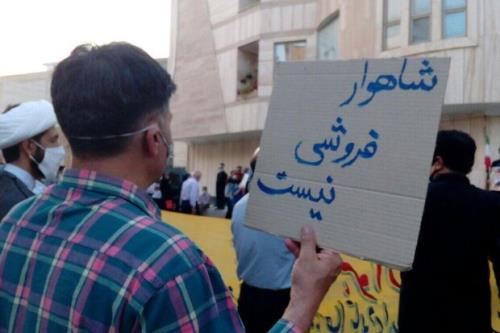 شاهوار
فروشی
نیست